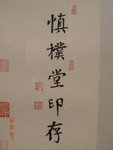 慎樸堂印存